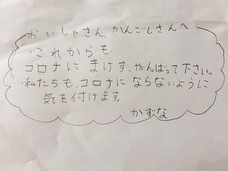 おいしゃさん、かんごしさんへ
これからも
コロナに まけず、がんばって下さい。
私たちも、コロナに ならないように
気を付けます。
かずな